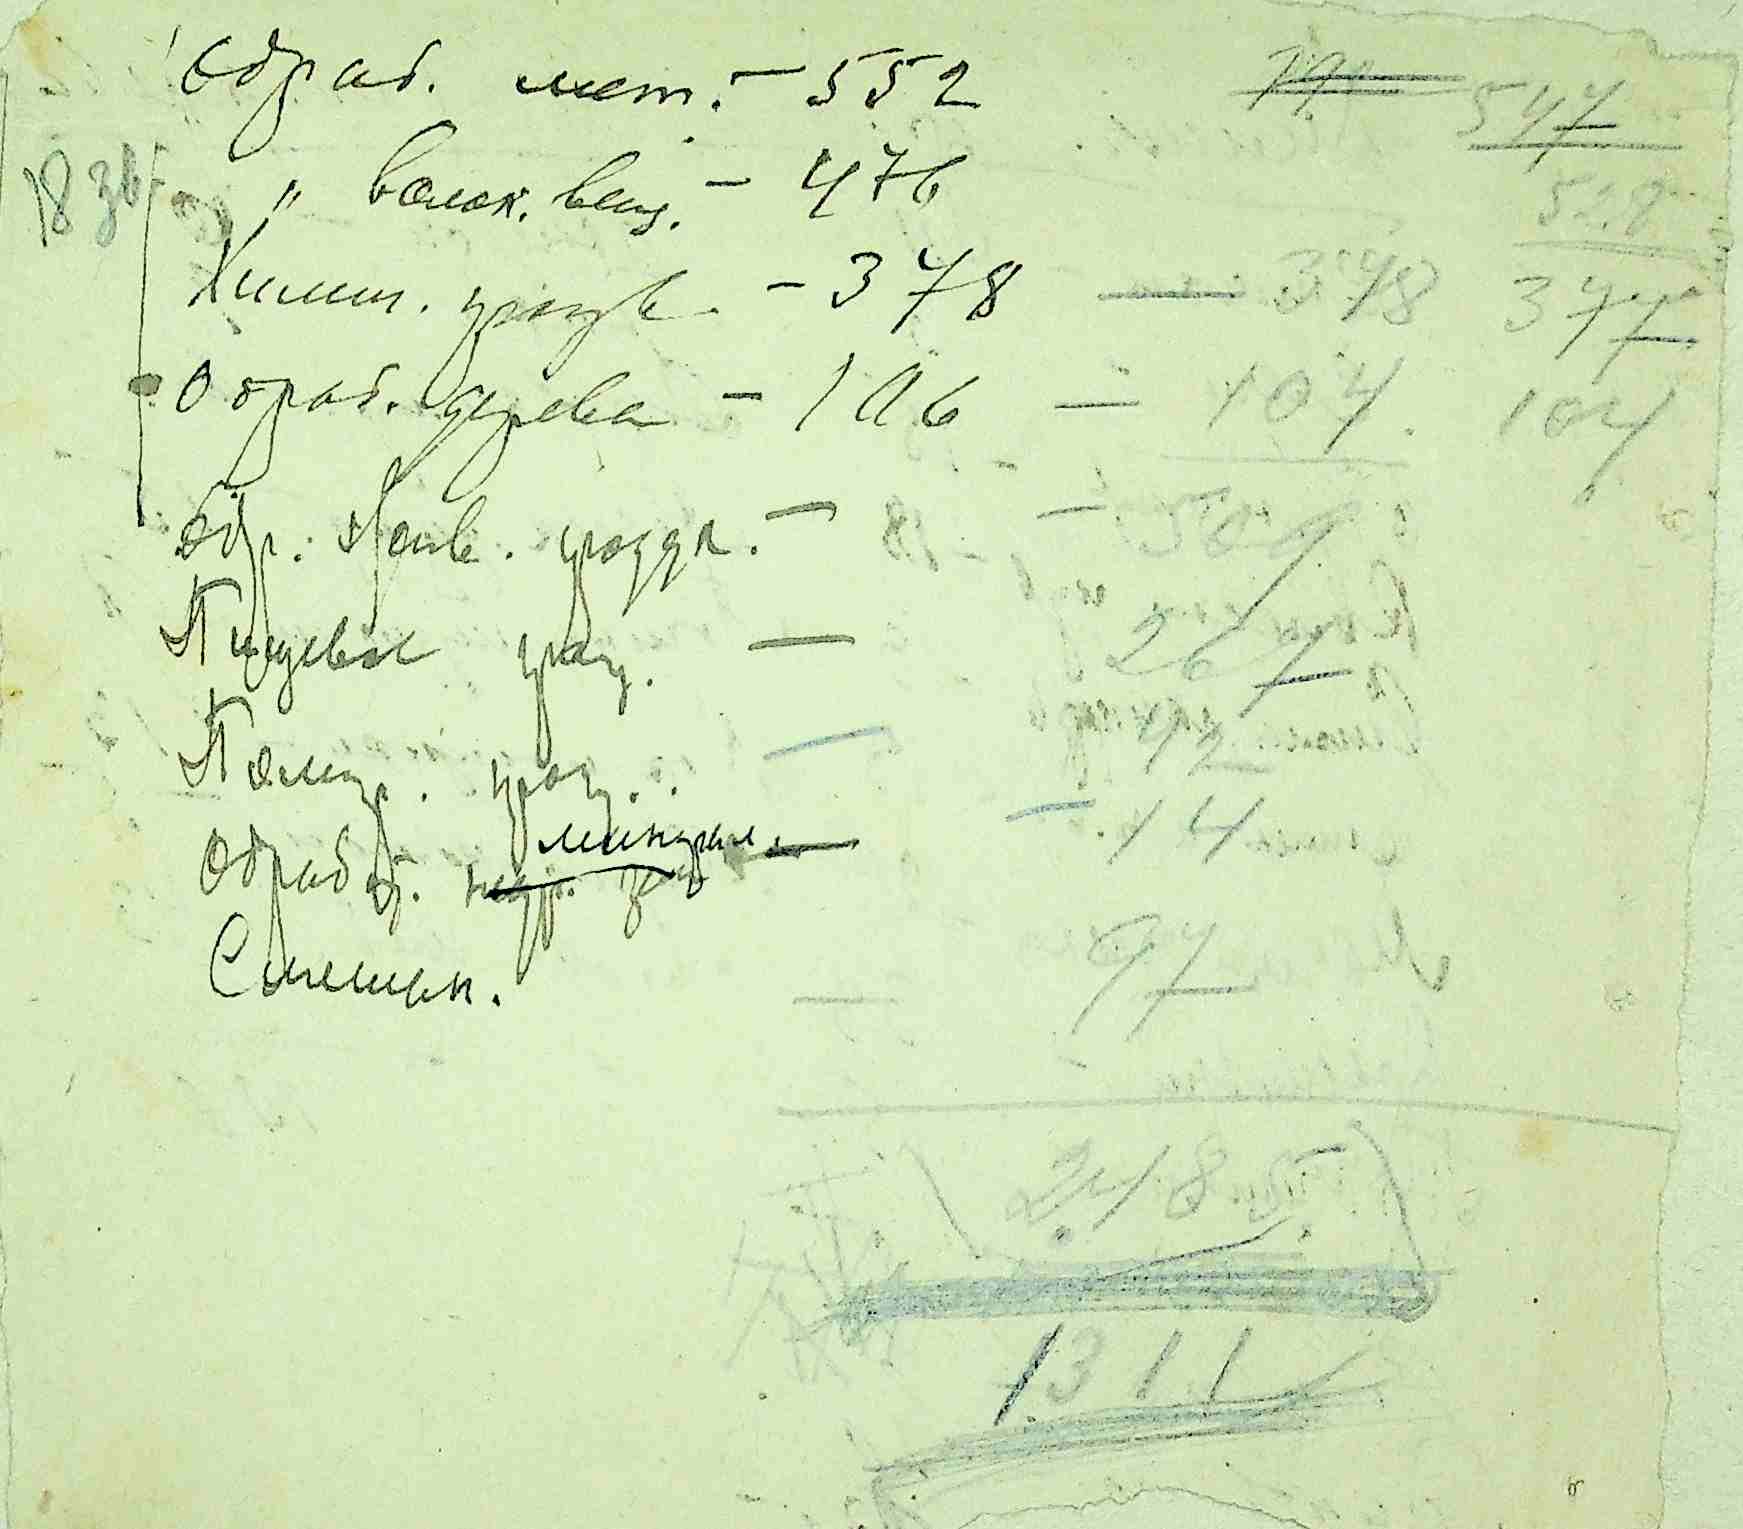 Обраб. мет. – 552 547
" волок. вещ. – 476 528
18 зв
Химич. произв. – 378 — 378 377
Обраб. дерева – 106 — 104. 104
Обр. произв. — 509
Пищевое произ. — 267
Полигр. произ. —
Обработ. минерал. — 14
Смешан. 97
2485
1311